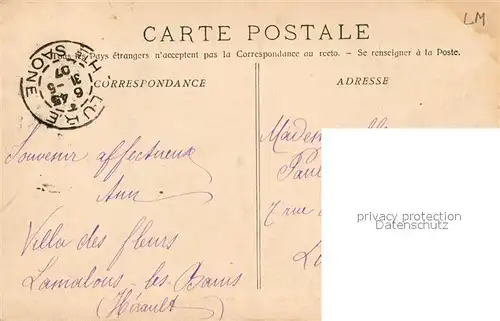 LM
CARTE POSTALE
Tous les Pays étrangers n'acceptent pas la Correspondance au recto. — Se renseigner à la Poste.
CORRESPONDANCE
ADRESSE
LURE
Hte SAONE
6 45
31 - 5
07
Souvenir affectueux
Villa des fleurs
Lamalous-les-Bains
(Hérault)
Madem
Paul
7 rue
privacy protection
Datenschutz